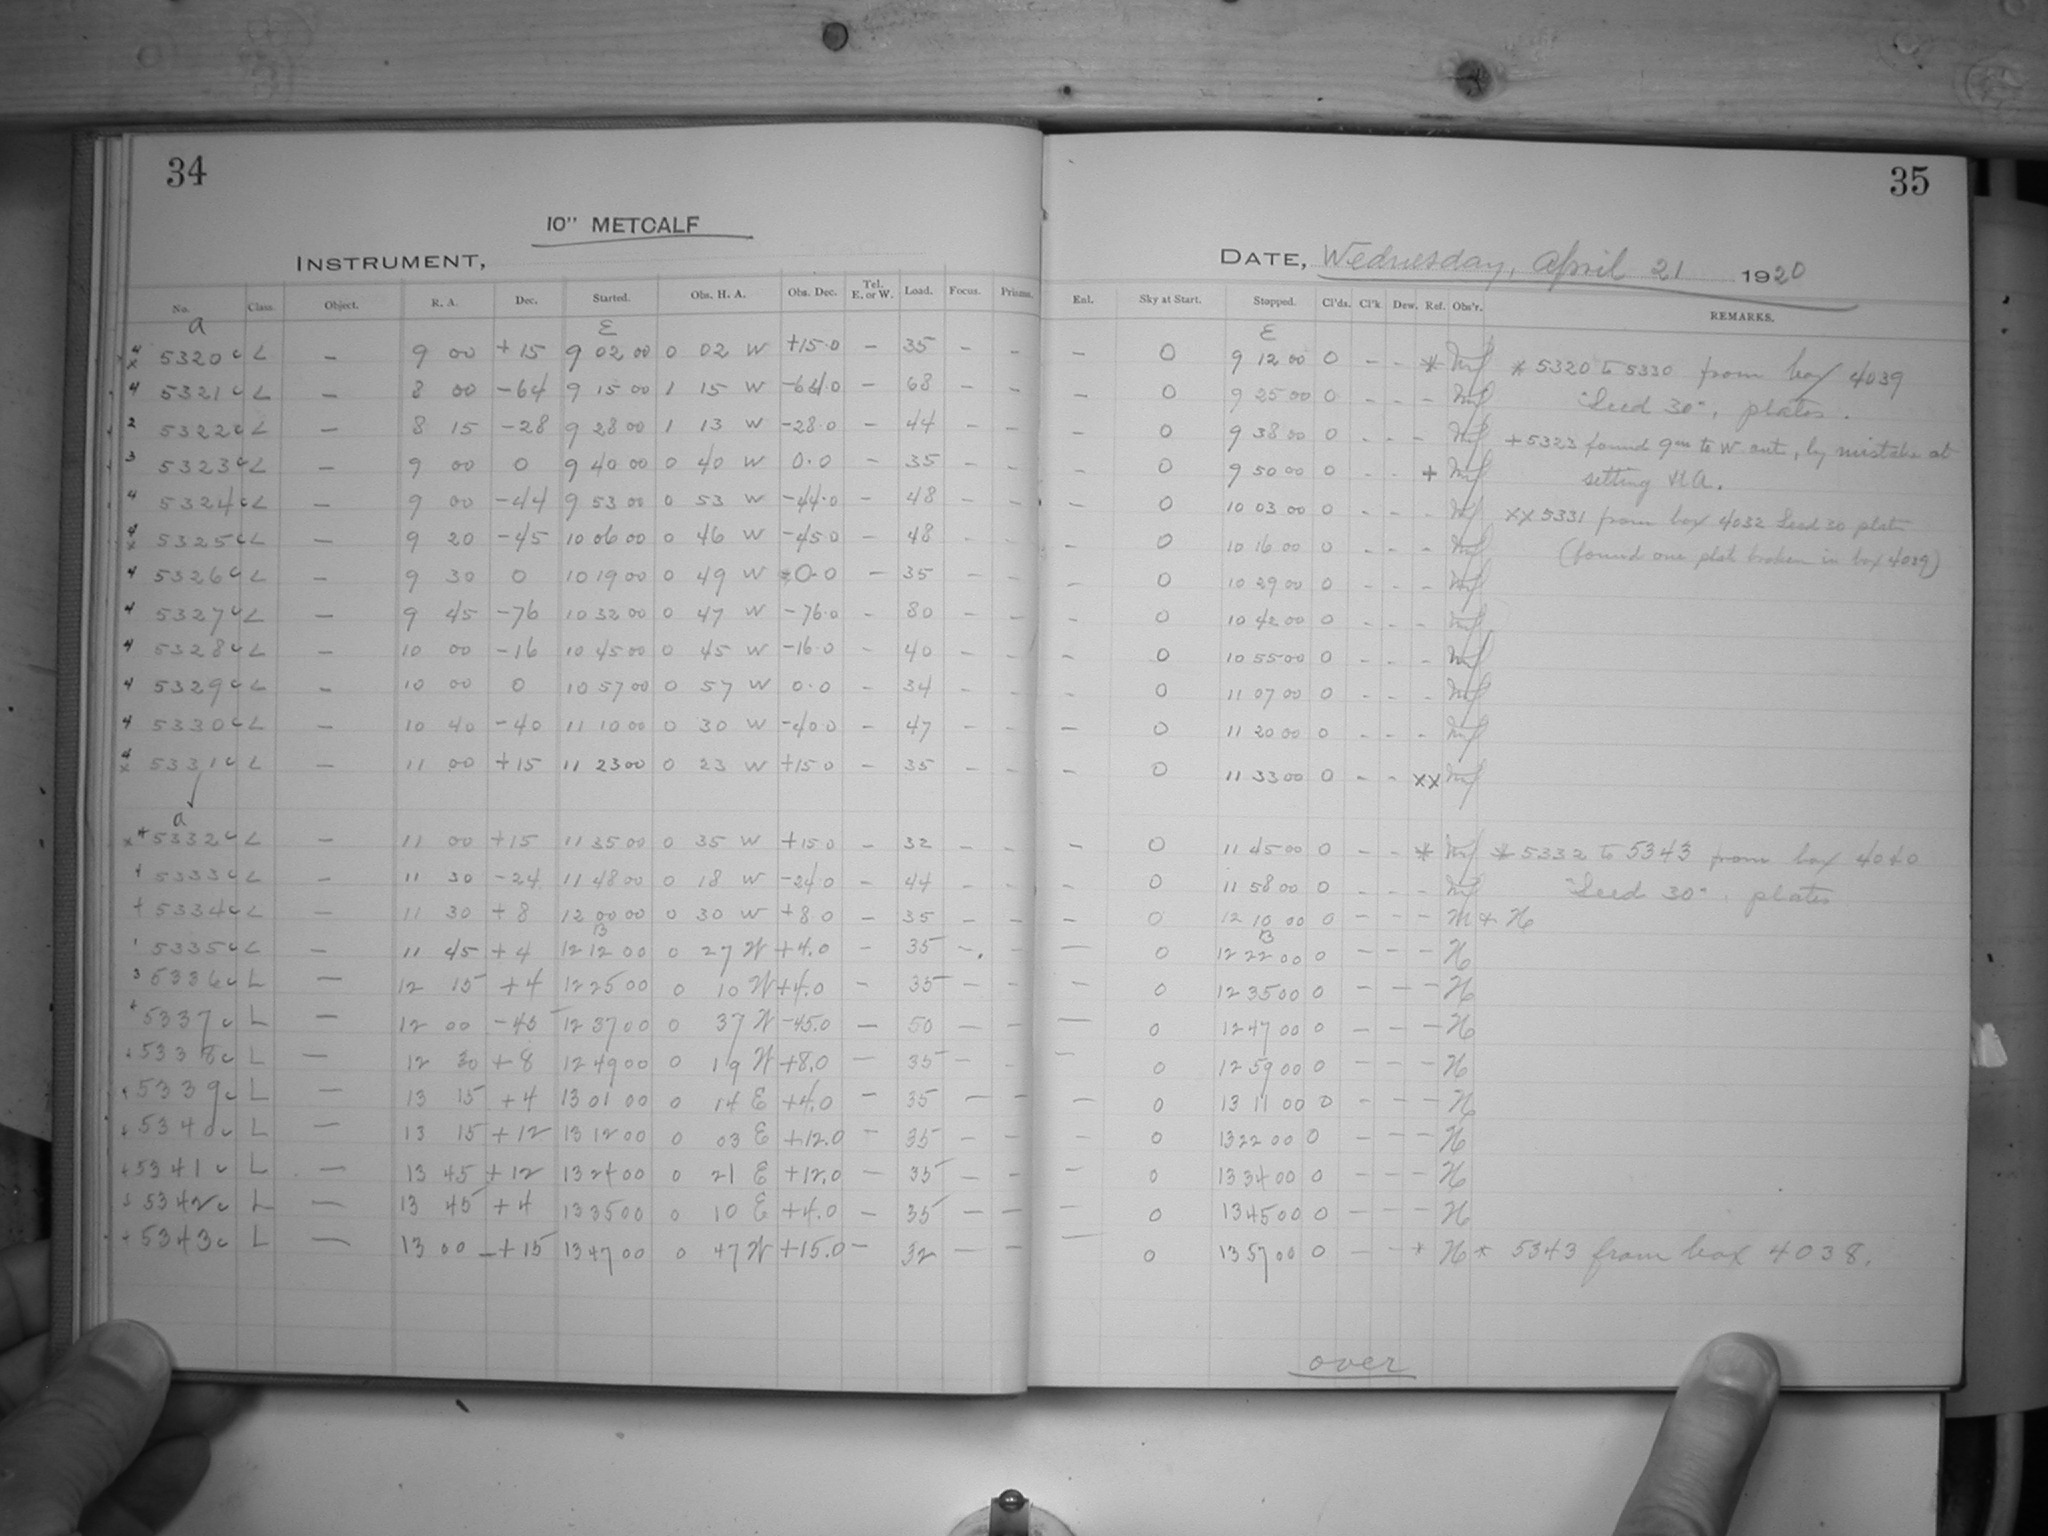 34
10" METCALF
INSTRUMENT,
No. Class. Object. R. A. Dec. Started. Obs. H. A. Obs. Dec. Tel. E. or W. Load. Focus. Prisms.
a E
5320 c L – 9 00 +15 9 02 00 0 02 W +15.0 – 35 – –
5321 c L – 8 00 -64 9 15 00 1 15 W -64.0 – 68 – –
5322 c L – 8 15 -28 9 28 00 1 13 W -28.0 – 44 – –
5323 c L – 9 00 0 9 40 00 0 40 W 0.0 – 35 – –
5324 c L – 9 00 -44 9 53 00 0 53 W -44.0 – 48 – –
5325 c L – 9 20 -45 10 06 00 0 46 W -45.0 – 48 – –
5326 c L – 9 30 0 10 19 00 0 49 W 0.0 – 35 – –
5327 c L – 9 45 -76 10 32 00 0 47 W -76.0 – 80 – –
5328 c L – 10 00 -16 10 45 00 0 45 W -16.0 – 40 – –
5329 c L – 10 00 0 10 57 00 0 57 W 0.0 – 34 – –
5330 c L – 10 40 -40 11 10 00 0 30 W -40.0 – 47 – –
5331 c L – 11 00 +15 11 23 00 0 23 W +15.0 – 35 – –
a
5332 c L – 11 00 +15 11 35 00 0 35 W +15.0 – 32 – –
5333 c L – 11 30 -24 11 48 00 0 18 W -24.0 – 44 – –
5334 c L – 11 30 +8 12 00 00 0 30 W +8.0 – 35 – –
B
5335 c L – 11 45 +4 12 12 00 0 27 W +4.0 – 35 –
5336 c L – 12 15 +4 12 25 00 0 10 W +4.0 – 35 – –
5337 c L – 12 00 -45 12 37 00 0 37 W -45.0 – 50 – –
5338 c L – 12 30 +8 12 49 00 0 19 W +8.0 – 35 – –
5339 c L – 13 15 +4 13 01 00 0 14 E +4.0 – 35 – –
5340 c L – 13 15 +12 13 12 00 0 03 E +12.0 – 35 – –
5341 c L – 13 45 +12 13 24 00 0 21 E +12.0 – 35 – –
5342 c L – 13 45 +4 13 35 00 0 10 E +4.0 – 35 – –
5343 c L – 13 00 +15 13 47 00 0 47 W +15.0 – 32 – –
35
DATE, Wednesday, April 21 1920
Enl. Sky at Start. Stopped. Cl'ds. Cl'k Dew. Ref. Obs'r. REMARKS.
E
– 0 9 12 00 0 – – * * 5320 to 5330 from box 4039
– 0 9 25 00 0 – – – "Seed 30", plates.
– 0 9 38 00 0 – – – + 5323 found 9m to W. out, by mistake at
– 0 9 50 00 0 – – + setting H.A.
– 0 10 03 00 0 – – – xx 5331 from box 4032 Seed 30 plate
– 0 10 16 00 0 – – – (found one plate broken in box 4039)
– 0 10 29 00 0 – – –
– 0 10 42 00 0 – – –
– 0 10 55 00 0 – – –
– 0 11 07 00 0 – – –
– 0 11 20 00 0 – – –
– 0 11 33 00 0 – – xx
– 0 11 45 00 0 – – * * 5332 to 5343 from box 4040
– 0 11 58 00 0 – – – "Seed 30". plates
– 0 12 10 00 0 – – – M + H
B
– 0 12 22 00 0 – – – H
– 0 12 35 00 0 – – – H
– 0 12 47 00 0 – – – H
– 0 12 59 00 0 – – – H
– 0 13 11 00 0 – – – H
– 0 13 22 00 0 – – – H
– 0 13 34 00 0 – – – H
– 0 13 45 00 0 – – – H
– 0 13 57 00 0 – – * H * 5343 from box 4038.
over